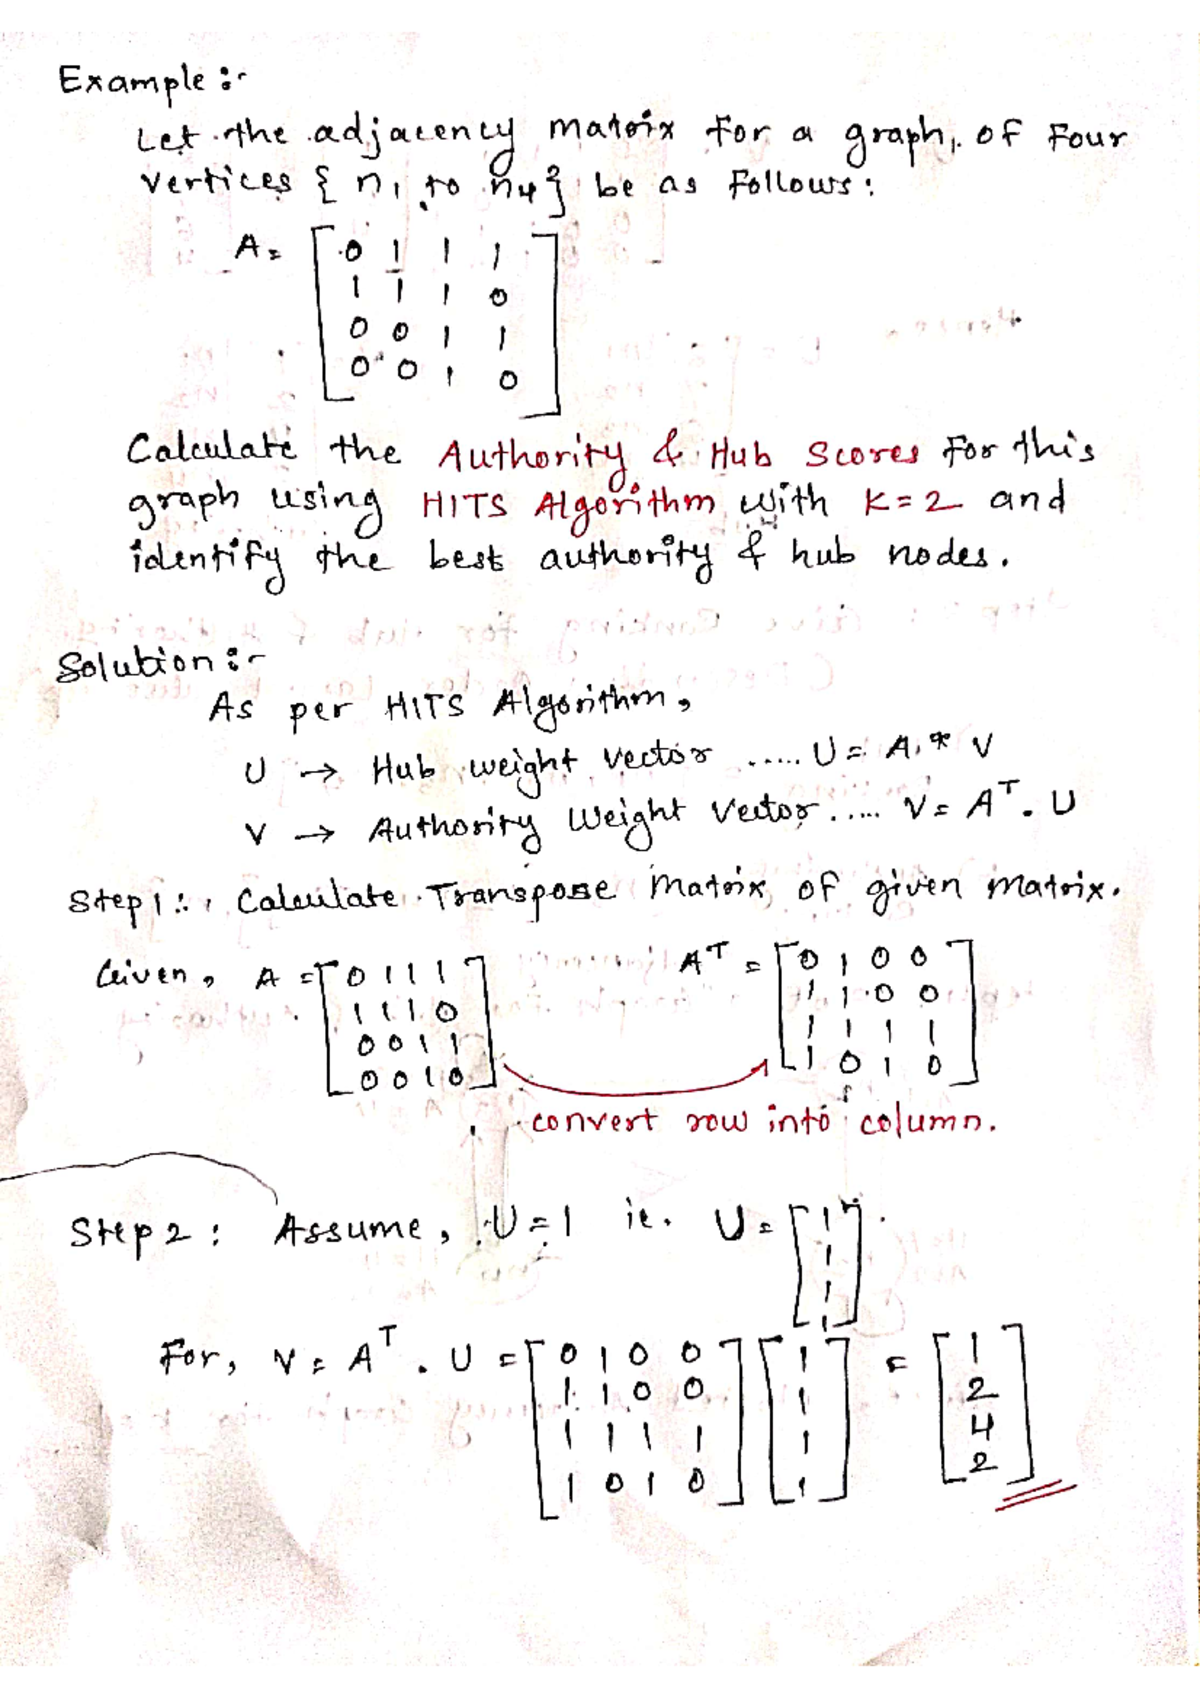 Example :-
Let the adjacency matrix for a graph, of Four
vertices { n1 to n4 } be as follows :
A = [ 0 1 1 1
1 1 1 0
0 0 1 1
0 0 1 0 ]
Calculate the Authority & Hub Scores For this
graph using HITS Algorithm with K=2 and
identify the best authority & hub nodes.
Solution :-
As per HITS Algorithm,
U → Hub weight vector ..... U = A * V
V → Authority Weight Vector ..... V = A^T . U
Step 1 : Calculate Transpose Matrix of given matrix.
Given, A = [ 0 1 1 1 A^T = [ 0 1 0 0
1 1 1 0 1 1 0 0
0 0 1 1 1 1 1 1
0 0 1 0 ] 1 0 1 0 ]
convert row into column.
Step 2 : Assume, U = 1 ie. U = [ 1
1
1
1 ]
For, V = A^T . U = [ 0 1 0 0 ] [ 1 ] = [ 1
1 1 0 0 1 2
1 1 1 1 1 4
1 0 1 0 1 2 ]